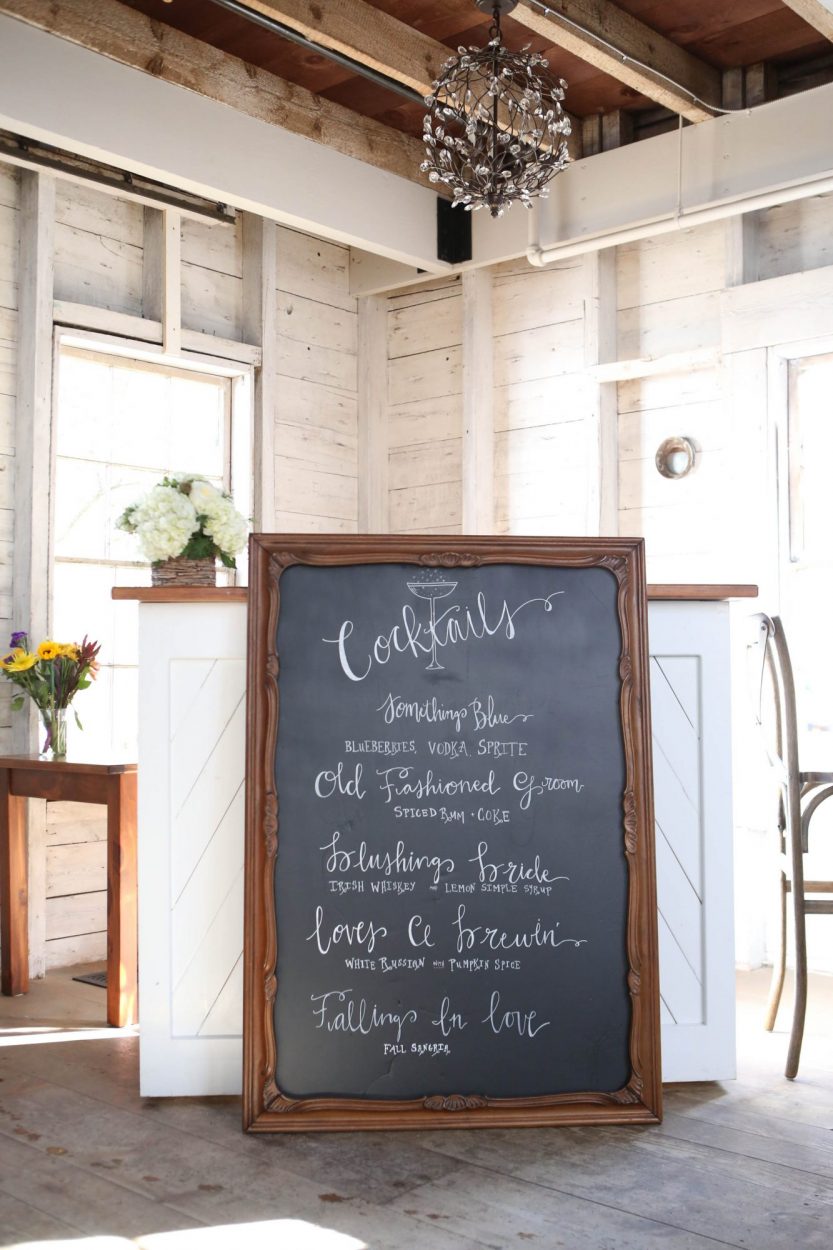 Cocktails
Something Blue
BLUEBERRIES, VODKA, SPRITE
Old Fashioned Groom
SPICED RUM + COKE
Blushing Bride
IRISH WHISKEY AND LEMON SIMPLE SYRUP
Loves a Brewin'
WHITE RUSSIAN WITH PUMPKIN SPICE
Falling In Love
FALL SANGRIA